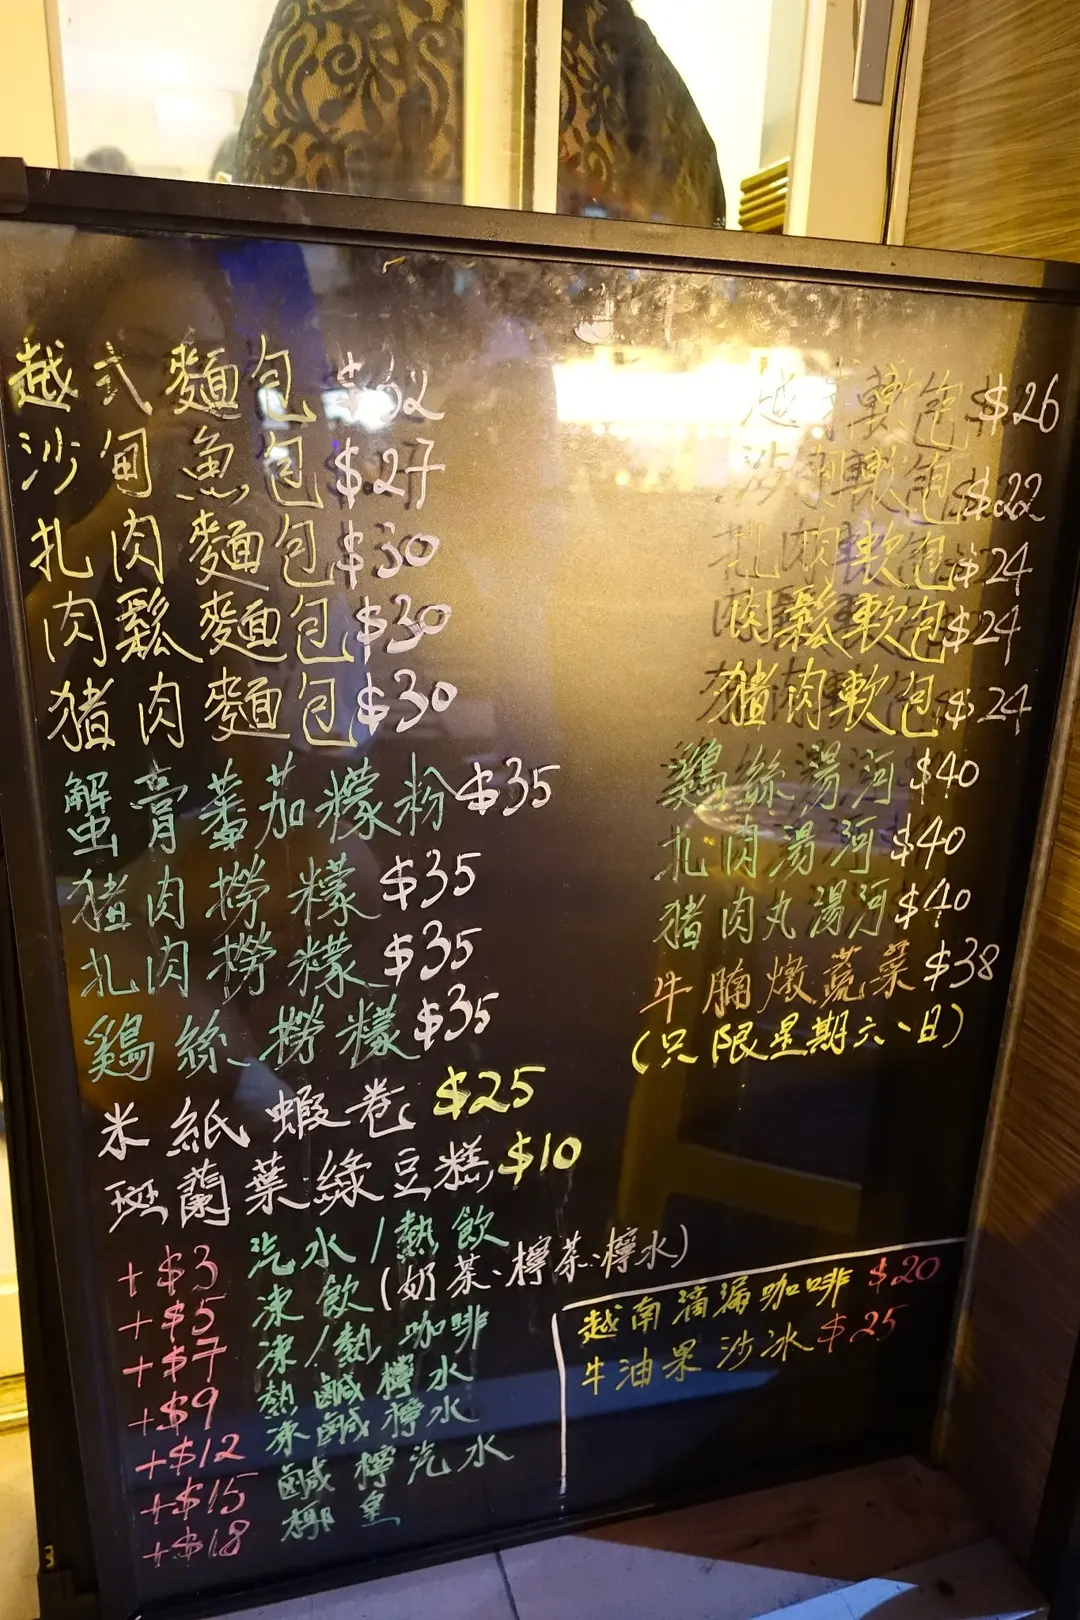 越式麵包 $32
沙甸魚包 $27
扎肉麵包 $30
肉鬆麵包 $30
豬肉麵包 $30
蟹膏蕃茄檬粉 $35
豬肉撈檬 $35
扎肉撈檬 $35
鷄絲撈檬 $35
米紙蝦卷 $25
斑蘭葉綠豆糕 $10
越式軟包 $26
沙甸軟包 $22
扎肉軟包 $24
肉鬆軟包 $24
豬肉軟包 $24
鷄絲湯河 $40
扎肉湯河 $40
豬肉丸湯河 $40
牛腩燉蔬菜 $38
(只限星期六、日)
+$3 汽水/熱飲
+$5 凍飲(奶茶、檸茶、檸水)
+$7 凍/熱咖啡
+$9 熱鹹檸水
+$12 凍鹹檸水
+$15 鹹檸汽水
+$18 椰皇
越南滴漏咖啡 $20
牛油果沙冰 $25